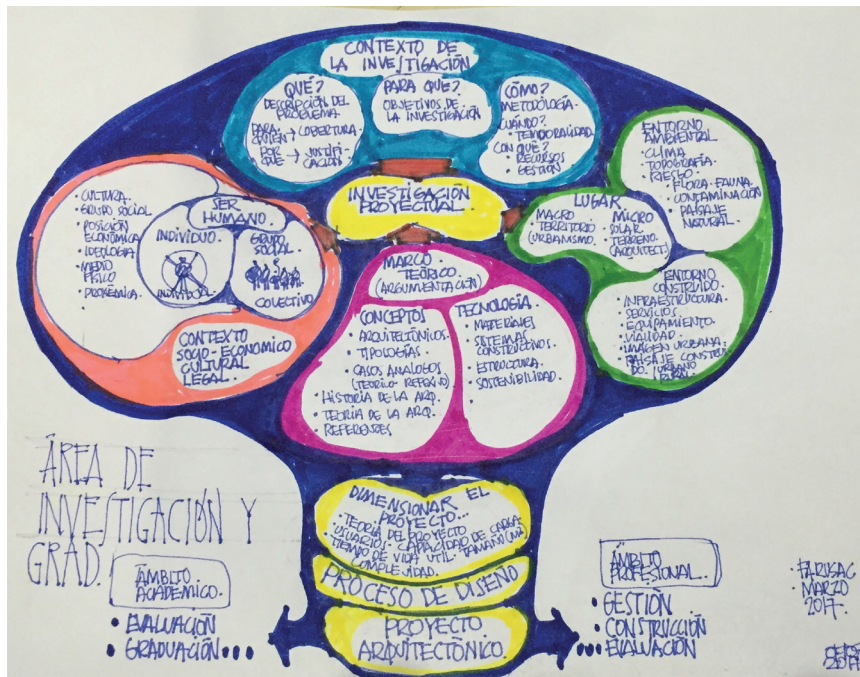 CONTEXTO DE
LA INVESTIGACIÓN
QUÉ?
DESCRIPCIÓN DEL
PROBLEMA
PARA
QUIEN → COBERTURA
POR
QUE → JUSTIFI-
CACIÓN
PARA QUE?
OBJETIVOS DE
LA INVESTIGACIÓN
CÓMO?
METODOLOGÍA
CUÁNDO?
• TEMPORALIDAD
CON QUÉ?
• RECURSOS
• GESTIÓN
INVESTIGACIÓN
PROYECTUAL
• CULTURA
• GRUPO SOCIAL
• POSICIÓN
ECONÓMICA
• IDEOLOGIA
• MEDIO
FÍSICO
• PROXEMICA
SER
HUMANO
INDIVIDUO
GRUPO
SOCIAL
COLECTIVO
CONTEXTO
SOCIO-ECONOMICO
CULTURAL
LEGAL
LUGAR
MACRO
TERRITORIO
(URBANISMO)
MICRO
SOLAR
TERRENO
(ARQUITECT)
ENTORNO
AMBIENTAL
• CLIMA
• TOPOGRAFÍA
• RIESGO
• FLORA-FAUNA
• CONTAMINACIÓN
• PAISAJE
NATURAL
ENTORNO
CONSTRUIDO
• INFRAESTRUCTURA
• SERVICIOS
• EQUIPAMIENTO
• VIALIDAD
• IMAGEN URBANA
• PAISAJE CONSTRUI
DO
MARCO
TEÓRICO
(ARGUMENTACIÓN)
CONCEPTOS
• ARQUITECTÓNICOS
• TIPOLOGÍAS
• CASOS ANALOGOS
• HISTORIA DE LA ARQ.
• TEORIA DE LA ARQ.
• REFERENTES
TECNOLOGÍA
• MATERIALES
• SISTEMAS
CONSTRUCTIVOS
• ESTRUCTURA
• SOSTENIBILIDAD
DIMENSIONAR EL
PROYECTO...
• TEORIA DEL PROYECTO
• USUARIOS - CAPACIDAD DE CARGA
• TIEMPO DE VIDA UTIL - TAMAÑO (M2)
COMPLEJIDAD
PROCESO DE DISEÑO
PROYECTO
ARQUITECTÓNICO
ÁREA DE
INVESTIGACIÓN Y
GRAD.
ÁMBITO
ACADÉMICO
• EVALUACIÓN
• GRADUACIÓN...
ÁMBITO
PROFESIONAL
• GESTIÓN
• CONSTRUCCIÓN
... EVALUACIÓN
• FARUSAC
• MARZO
2017